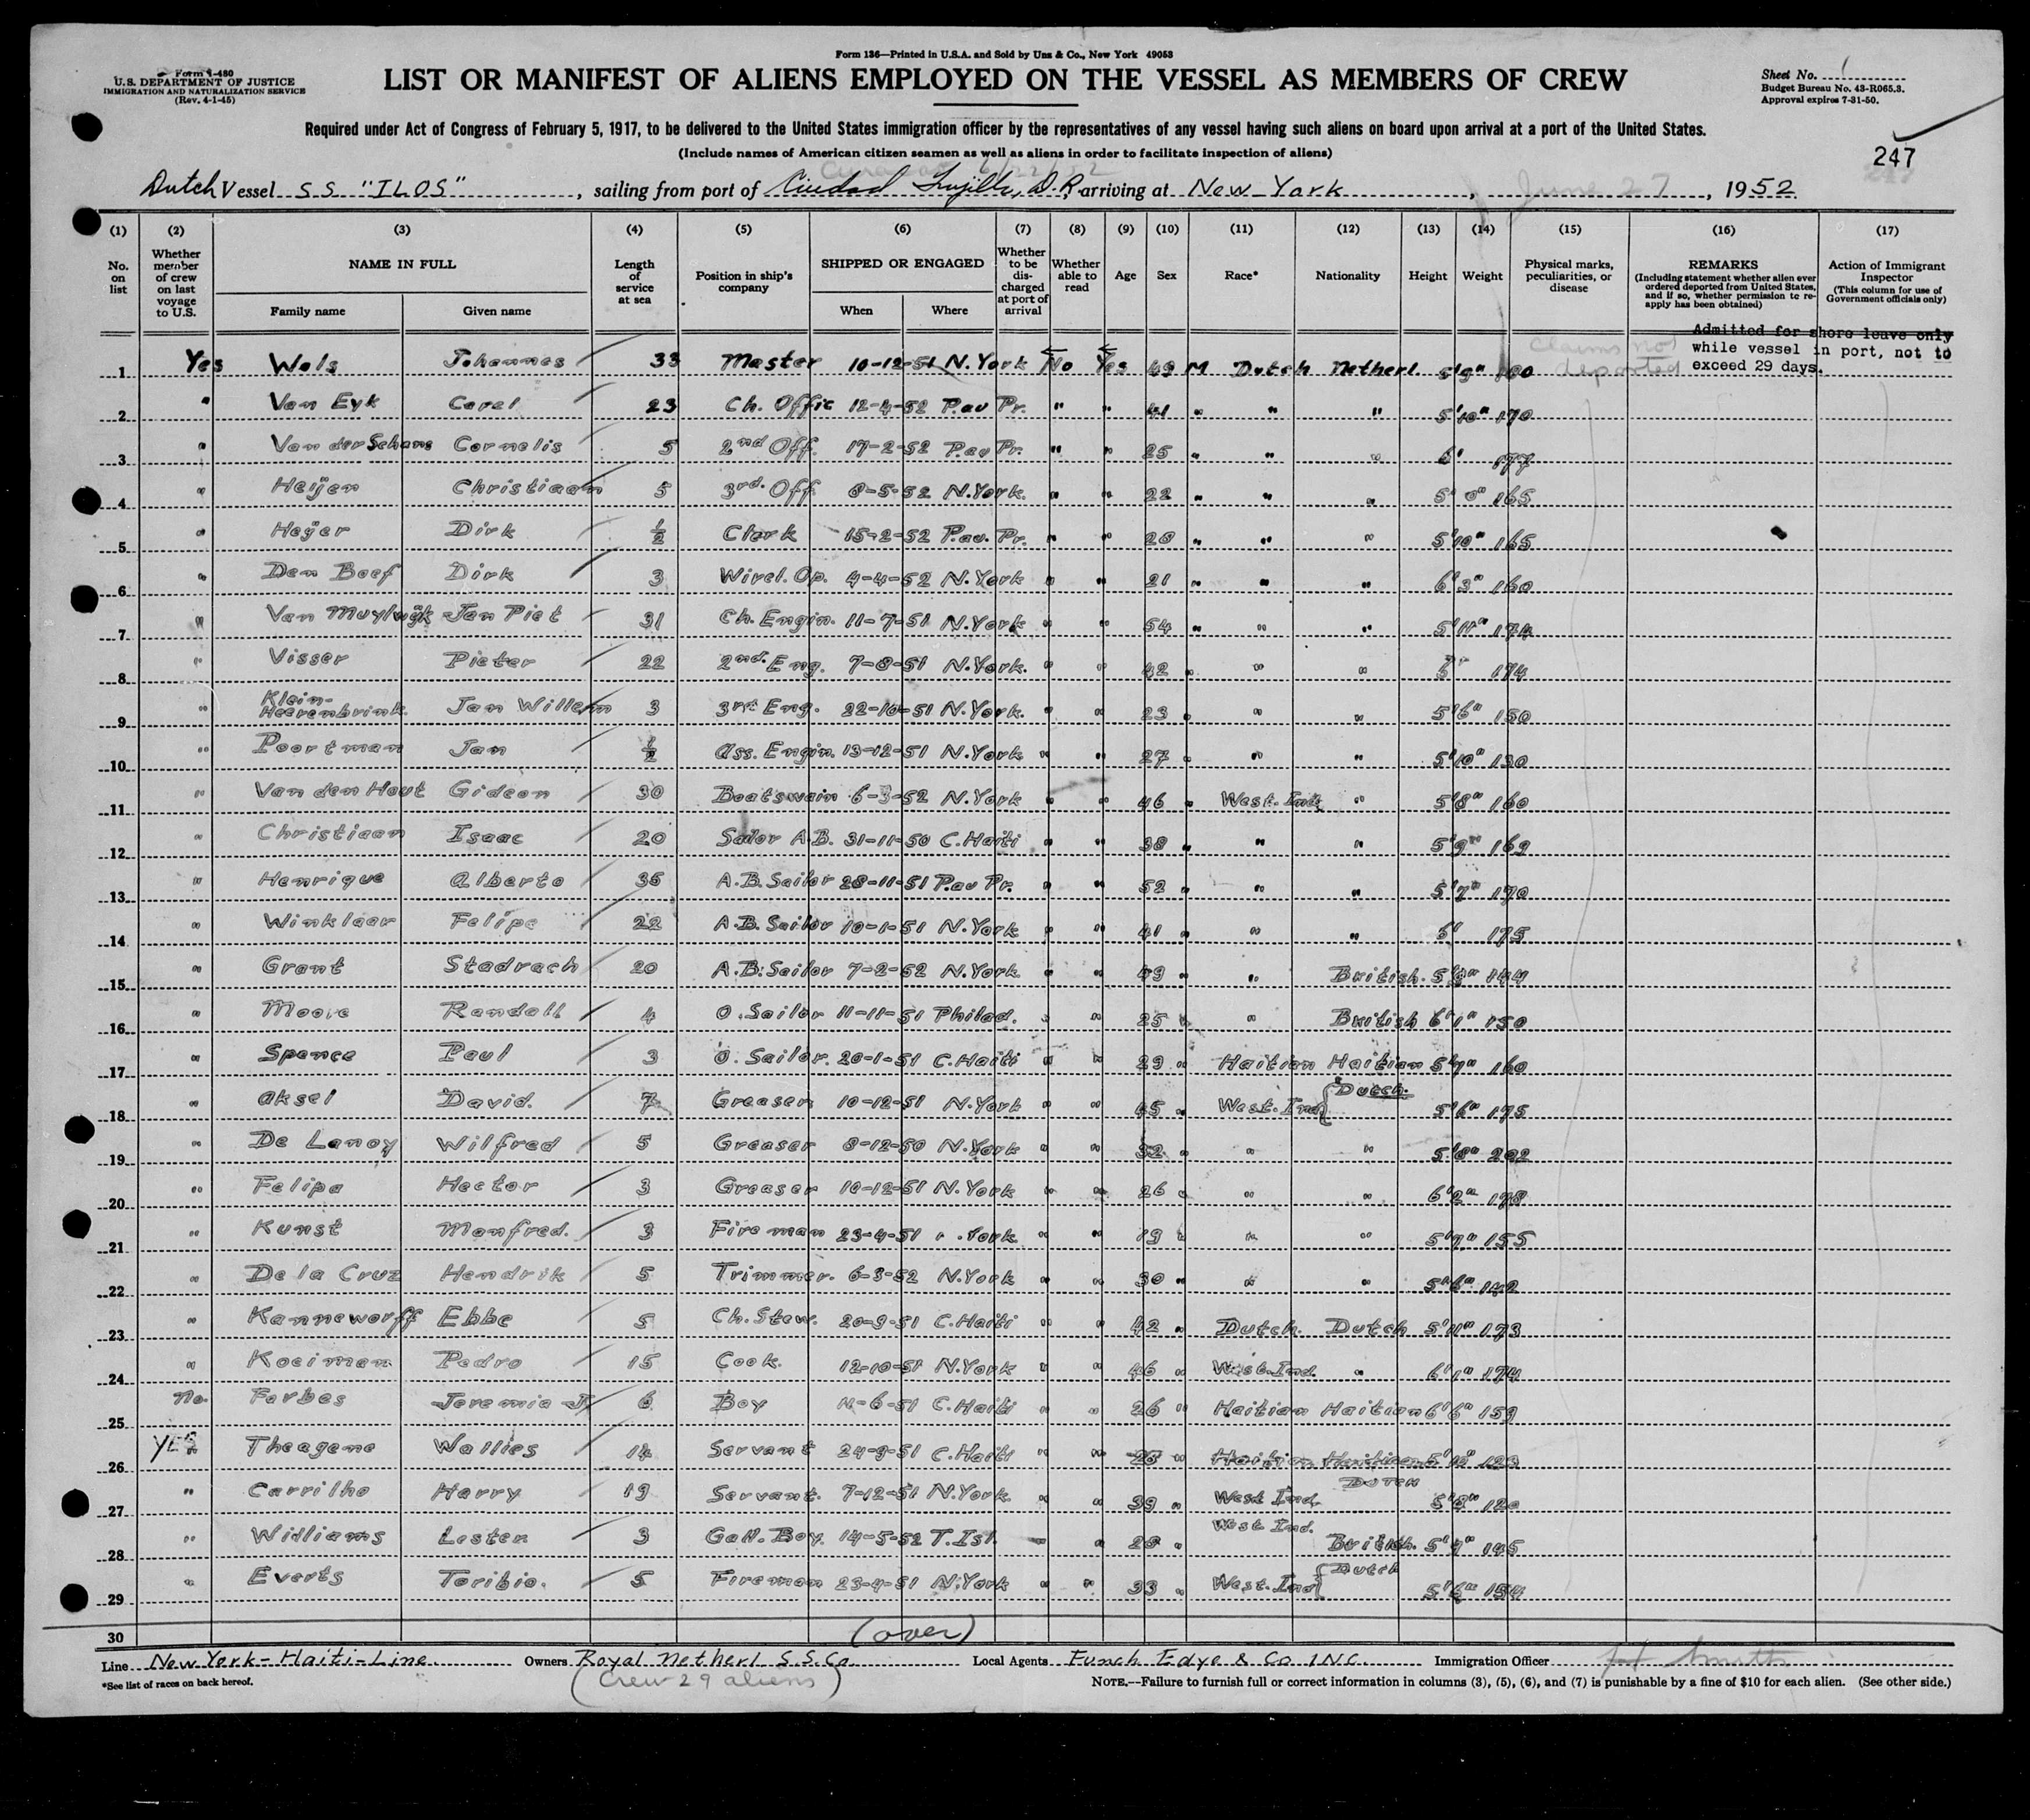 Form 136—Printed in U.S.A. and Sold by Unz & Co., New York 49053
Form I-480
U.S. DEPARTMENT OF JUSTICE
IMMIGRATION AND NATURALIZATION SERVICE
(Rev. 4-1-45)
LIST OR MANIFEST OF ALIENS EMPLOYED ON THE VESSEL AS MEMBERS OF CREW
Sheet No. 1
Budget Bureau No. 43-R065.3.
Approval expires 7-31-50.
Required under Act of Congress of February 5, 1917, to be delivered to the United States immigration officer by the representatives of any vessel having such aliens on board upon arrival at a port of the United States.
(Include names of American citizen seamen as well as aliens in order to facilitate inspection of aliens)
247
Dutch Vessel S.S. "ILOS", sailing from port of Ciudad Trujillo, D.R., arriving at New York, June 27, 1952
(1) (2) (3) (4) (5) (6) (7) (8) (9) (10) (11) (12) (13) (14) (15) (16) (17)
No. on list
Whether member of crew on last voyage to U.S.
NAME IN FULL
Family name Given name
Length of service at sea
Position in ship's company
SHIPPED OR ENGAGED
When Where
Whether to be discharged at port of arrival
Whether able to read
Age Sex Race* Nationality Height Weight
Physical marks, peculiarities, or disease
REMARKS
(Including statement whether alien ever ordered deported from United States, and if so, whether permission to reapply has been obtained)
Action of Immigrant Inspector
(This column for use of Government officials only)
Admitted for shore leave only
while vessel in port, not to
exceed 29 days.
Claims not deported
1 Yes Wols Johannes 33 Master 10-12-51 N.York No Yes 49 M Dutch Netherl. 5'9" 180
2 " Van Eyk Carel 23 Ch. Offic 12-4-52 P.au Pr. " " 41 " " " 5'10" 170
3 " Van der Schans Cornelis 5 2nd Off. 17-2-52 P.au Pr. " " 25 " " " 6' 177
4 " Heijen Christiaan 5 3rd. Off. 8-5-52 N.York. " " 22 " " " 165
5 " Heijer Dirk ½ Clark 15-2-52 P.au. Pr. " " 20 " " " 5'10" 165
6 " Den Boef Dirk 3 Wirel. Op. 4-4-52 N.York " " 21 " " " 6'3" 160
7 " Van Muylwijk Jan Piet 31 Ch. Engin. 11-7-51 N.York " " 54 " " " 5'11" 174
8 " Visser Pieter 22 2nd. Eng. 7-8-51 N.York. " " 42 " " " 174
9 " Klein-Heerenbrink Jan Willem 3 3rd Eng. 22-10-51 N.York. " " 23 " " " 5'6" 150
10 " Poortman Jan ½ Ass. Engin. 13-12-51 N.York " " 27 " " " 5'10" 130
11 " Van den Hout Gideon 30 Boatswain 6-3-52 N.York " " 46 " West. Ind. " 5'8" 160
12 " Christiaan Isaac 20 Sailor A.B. 31-11-50 C.Haiti " " 38 " " " 5'9" 169
13 " Henrique Alberto 35 A.B. Sailor 28-11-51 P.au Pr. " " 52 " " " 5'7" 170
14 " Winklaar Felipe 22 A.B. Sailor 10-1-51 N.York " " 41 " " " 6' 175
15 " Grant Stadrach 20 A.B. Sailor 7-2-52 N.York " " 49 " " British. 144
16 " Moore Randall 4 O. Sailor 11-11-51 Philad. " " 25 " " British 6'1" 150
17 " Spence Paul 3 O. Sailor. 20-1-51 C.Haiti " " 29 " Haitian Haitian 5'7" 160
18 " Aksel David. 7 Greaser 10-12-51 N.York " " 45 " West. Ind Dutch. 5'6" 175
19 " De Lanoy Wilfred 5 Greaser 8-12-50 N.York " " 32 " " " 5'8" 202
20 " Felipa Hector 3 Greaser 10-12-51 N.York " " 26 " " " 6'2" 178
21 " Kunst Monfred. 3 Fireman 23-4-51 York " " 19 " " " 5'7" 155
22 " De la Cruz Hendrik 5 Trimmer. 6-3-52 N.York " " 30 " " " 5'6" 142
23 " Kanneworff Ebbe 5 Ch. Stew. 20-9-51 C.Haiti " " 42 " Dutch. Dutch 5'11" 173
24 " Koeiman Pedro 15 Cook. 12-10-51 N.York " " 46 " West.Ind. " 6'1" 174
25 No. Farbes Jeremia J. 6 Boy 11-6-51 C.Haiti " " 26 " Haitian Haitian 6'6" 159
26 YES " Theagene Wallies 14 Servant 24-9-51 C.Haiti " " 28 " Haitian Haitian 123
27 " Carrilho Harry 19 Servant. 7-12-51 N.York. " " 39 " West Ind. DUTCH 5'8" 120
28 " Williams Lester 3 Gall. Boy. 14-5-52 T.Isl. " " 28 " West Ind. British. 5'9" 145
29 " Everts Toribio. 5 Fireman 23-4-51 N.York " " 33 " West. Ind Dutch 5'6" 154
30
(over)
Line New York-Haiti-Line. Owners Royal Netherl. S.S.Co. Local Agents Funch Edye & Co INC. Immigration Officer Smith
(Crew 29 aliens)
*See list of races on back hereof.
NOTE.—Failure to furnish full or correct information in columns (3), (5), (6), and (7) is punishable by a fine of $10 for each alien. (See other side.)